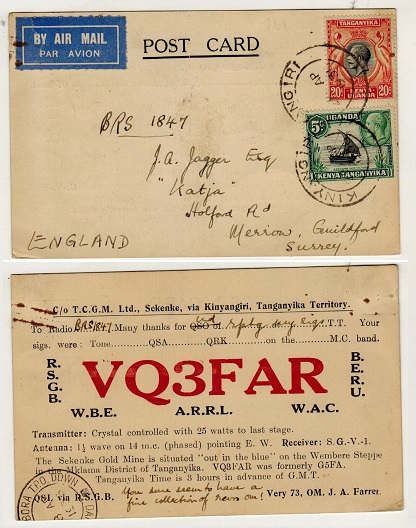 BY AIR MAIL
PAR AVION
POST CARD
TANGANYIKA
20c 20c
KENYA
UGANDA
UGANDA
5c
KENYA TANGANYIKA
KINYANGIRI
AP
BRS 1847
J.A. Jagger Esq
"Katja"
Holford Rd
Merrow, Guildford
Surrey.
ENGLAND
C/o T.C.G.M. Ltd., Sekenke, via Kinyangiri, Tanganyika Territory.
To Radio BRS1847. Many thanks for QSO of rptg my sigs. T.T. Your
sigs. were: Tone......QSA......QRK......on the......M.C. band.
R.S.G.B.
VQ3FAR
B.E.R.U.
W.B.E. A.R.R.L. W.A.C.
Transmitter: Crystal controlled with 25 watts to last stage.
Antenna: 1½ wave on 14 m.c. (phased) pointing E. W. Receiver: S.G.-V.-1.
The Sekenke Gold Mine is situated "out in the blue" on the Wembere Steppe
in the Mklama District of Tanganyika. VQ3FAR was formerly G5FA.
Tanganyika Time is 3 hours in advance of G.M.T.
QSL via R.S.G.B. You sure seem to have a Very 73, OM. J. A. Farrer.
fine collection of news om!
BORA T.P.O. DOWN